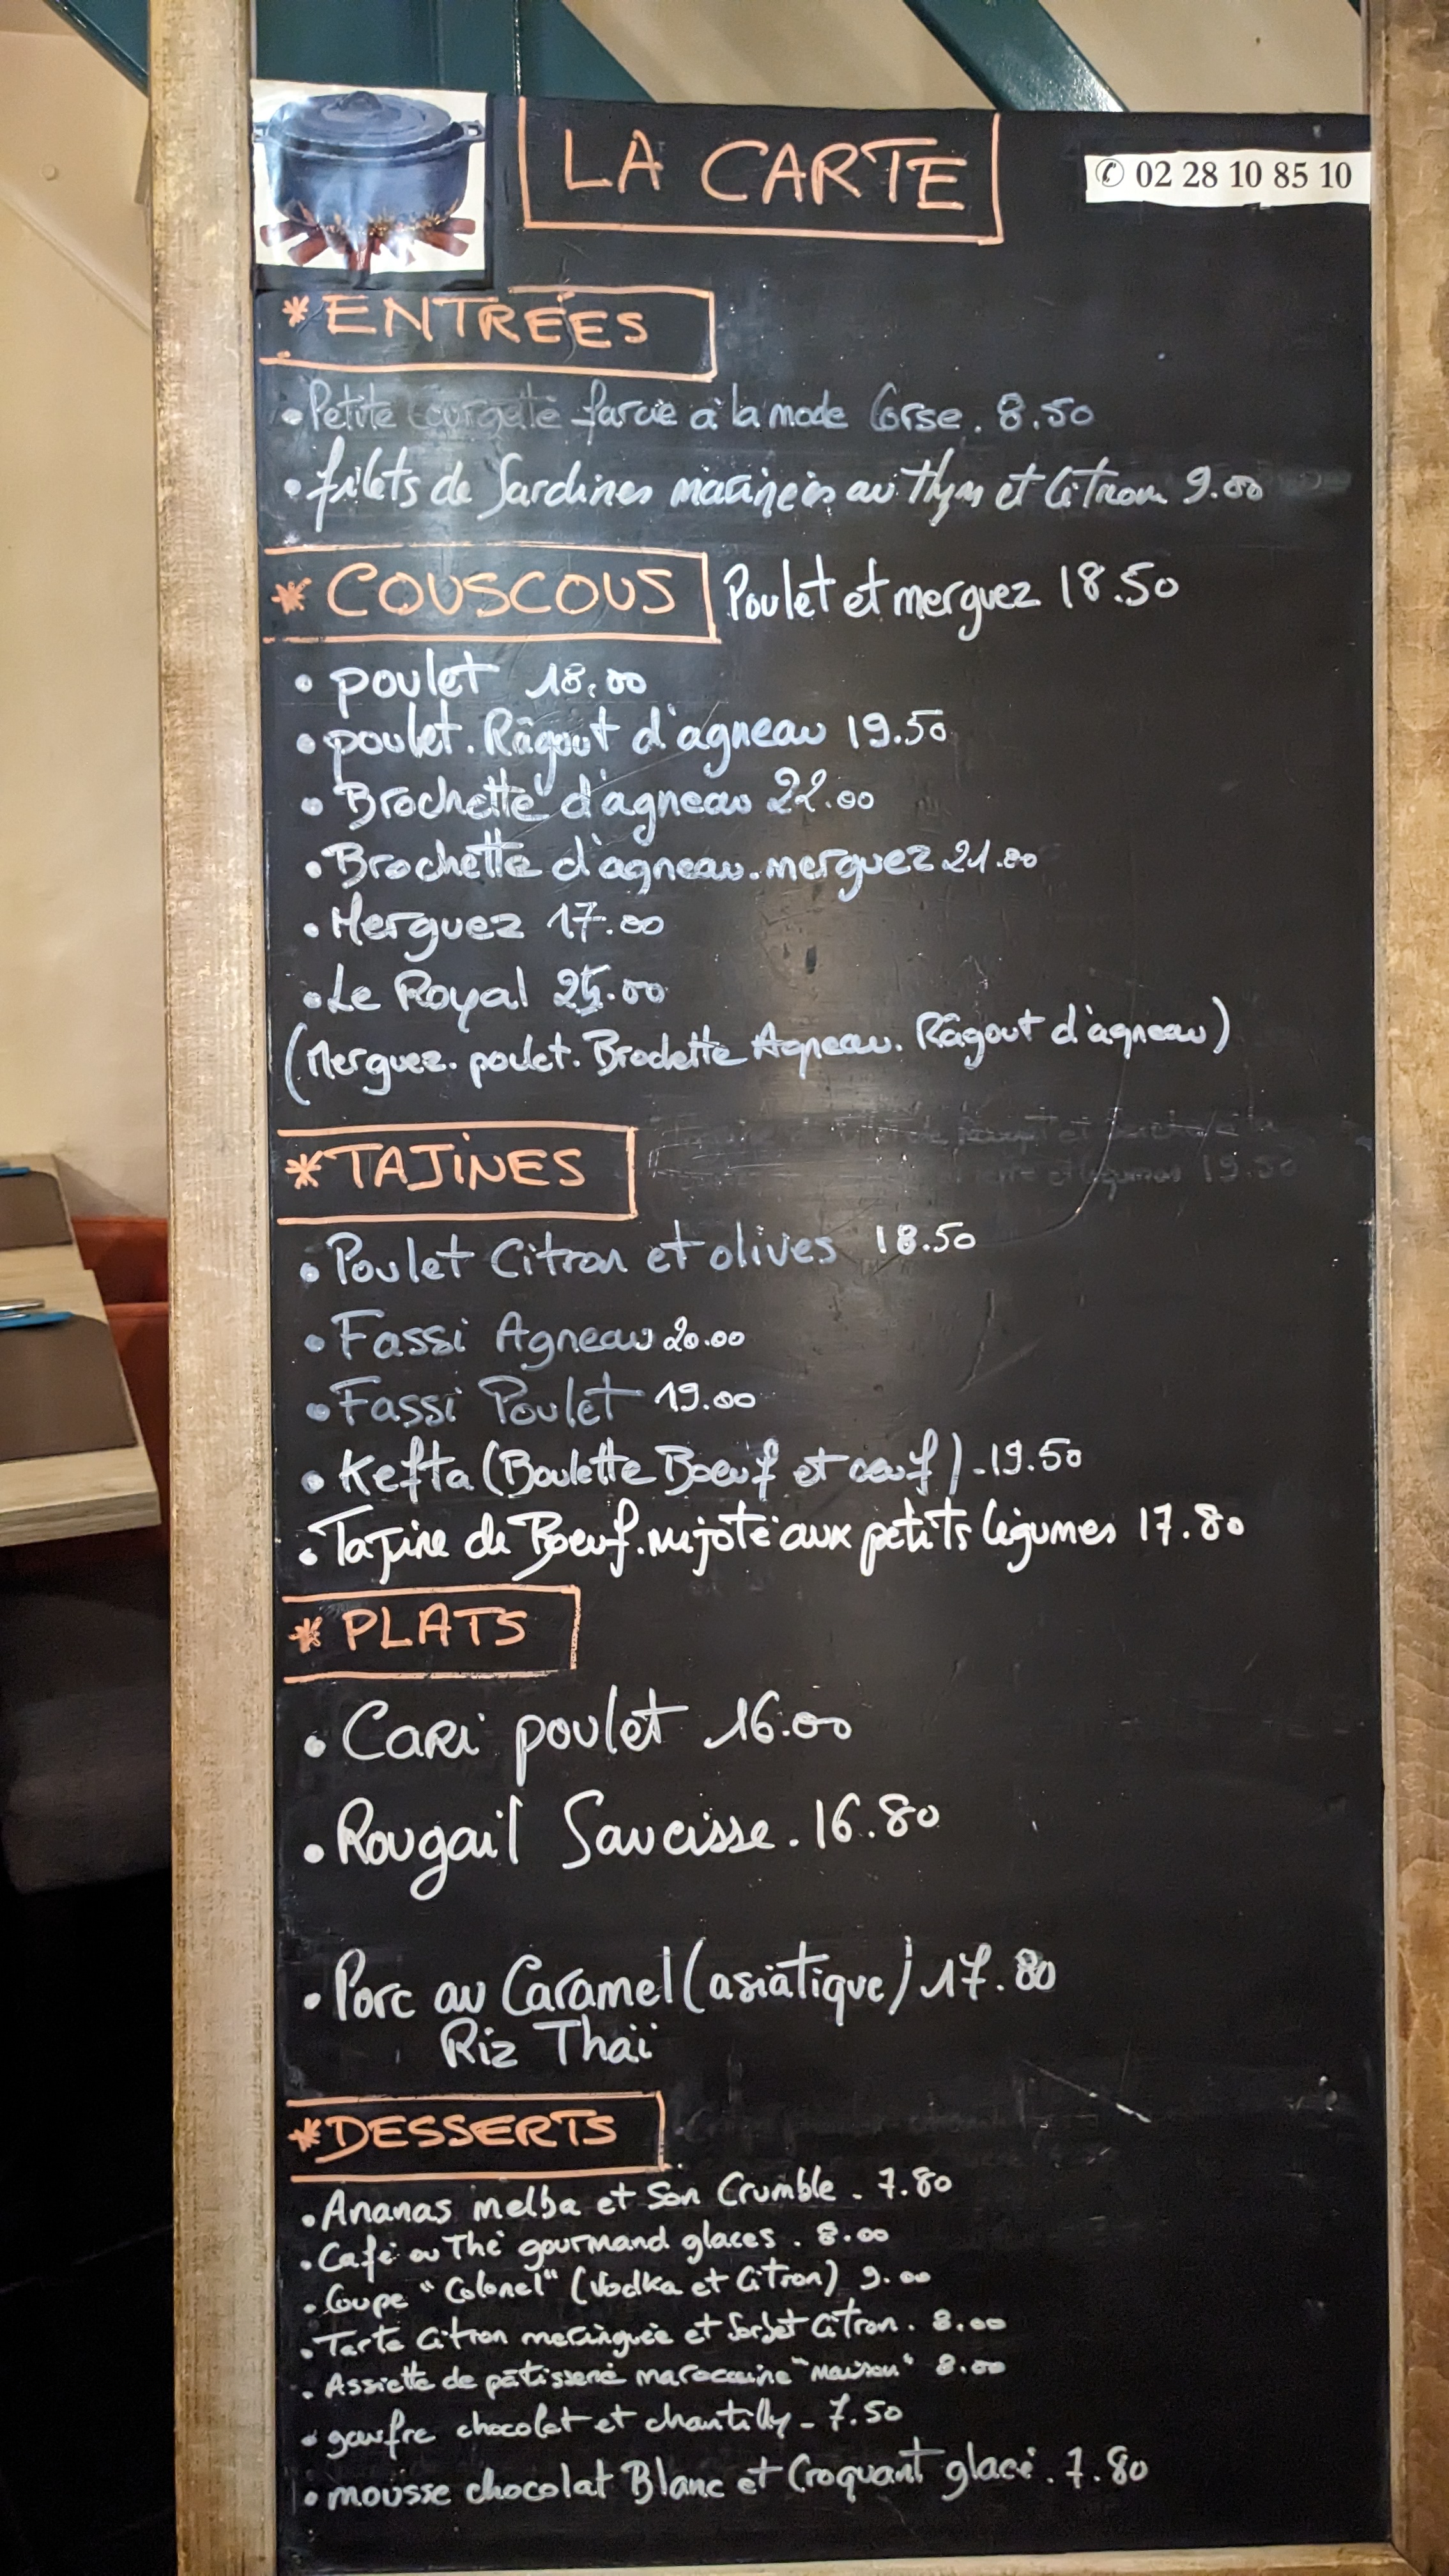 LA CARTE
✆ 02 28 10 85 10
* ENTRÉES
• Petite Courgette farcie à la mode Corse. 8.50
• filets de Sardines marinées au thym et Citron 9.00
* COUSCOUS Poulet et merguez 18.50
• poulet 18.00
• poulet. Râgout d'agneau 19.50
• Brochette d'agneau 22.00
• Brochette d'agneau.merguez 21.00
• Merguez 17.00
• Le Royal 25.00
(Merguez. poulet. Brochette Agneau. Râgout d'agneau)
* TAJINES
19.50
• Poulet Citron et olives 18.50
• Fassi Agneau 20.00
• Fassi Poulet 19.00
• Kefta (Boulette Boeuf et oeuf)-19.50
• Tajine de Boeuf.mijoté aux petits légumes 17.80
* PLATS
• Cari poulet 16.00
• Rougail Saucisse. 16.80
• Porc au Caramel (asiatique) 17.80
Riz Thaï
* DESSERTS
• Ananas melba et Son Crumble. 7.80
• Café ou Thé gourmand glaces. 8.00
• Coupe "Colonel" (Vodka et Citron) 9.00
• Tarte Citron meringuée et Sorbet Citron. 8.00
• Assiette de pâtisserie marocaine "Maison" 8.00
• gaufre chocolat et chantilly - 7.50
• mousse chocolat Blanc et Croquant glacé. 7.80